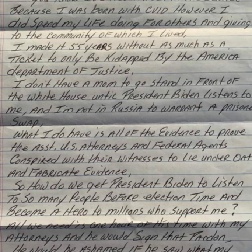 Because I was born with CVID However I
did Spend my life doing For others and giving
to the community OF which I lived,
I made it 55 years without as much as a
Ticket to only Be Kidnapped By the America
department of Justice.
I dont Have a mom to go stand in Front of
the White House until President Biden Listens to
me, and I'm not in Russia to warrant a prisoner
Swap.
What I do have is all of the Evidence to prove
the Asst. U.S. Attorneys and Federal Agents
Conspired with their witnesses to Lie under Oath
And Fabricate Evidence,
So How do we get President Biden to Listen
To So many People Before election Time And
Become A Hero to millions who Support me?
All we need is one hour of this time with my
Attorneys And he would Sign that Pardon
He would be Ashamed if he saw what my